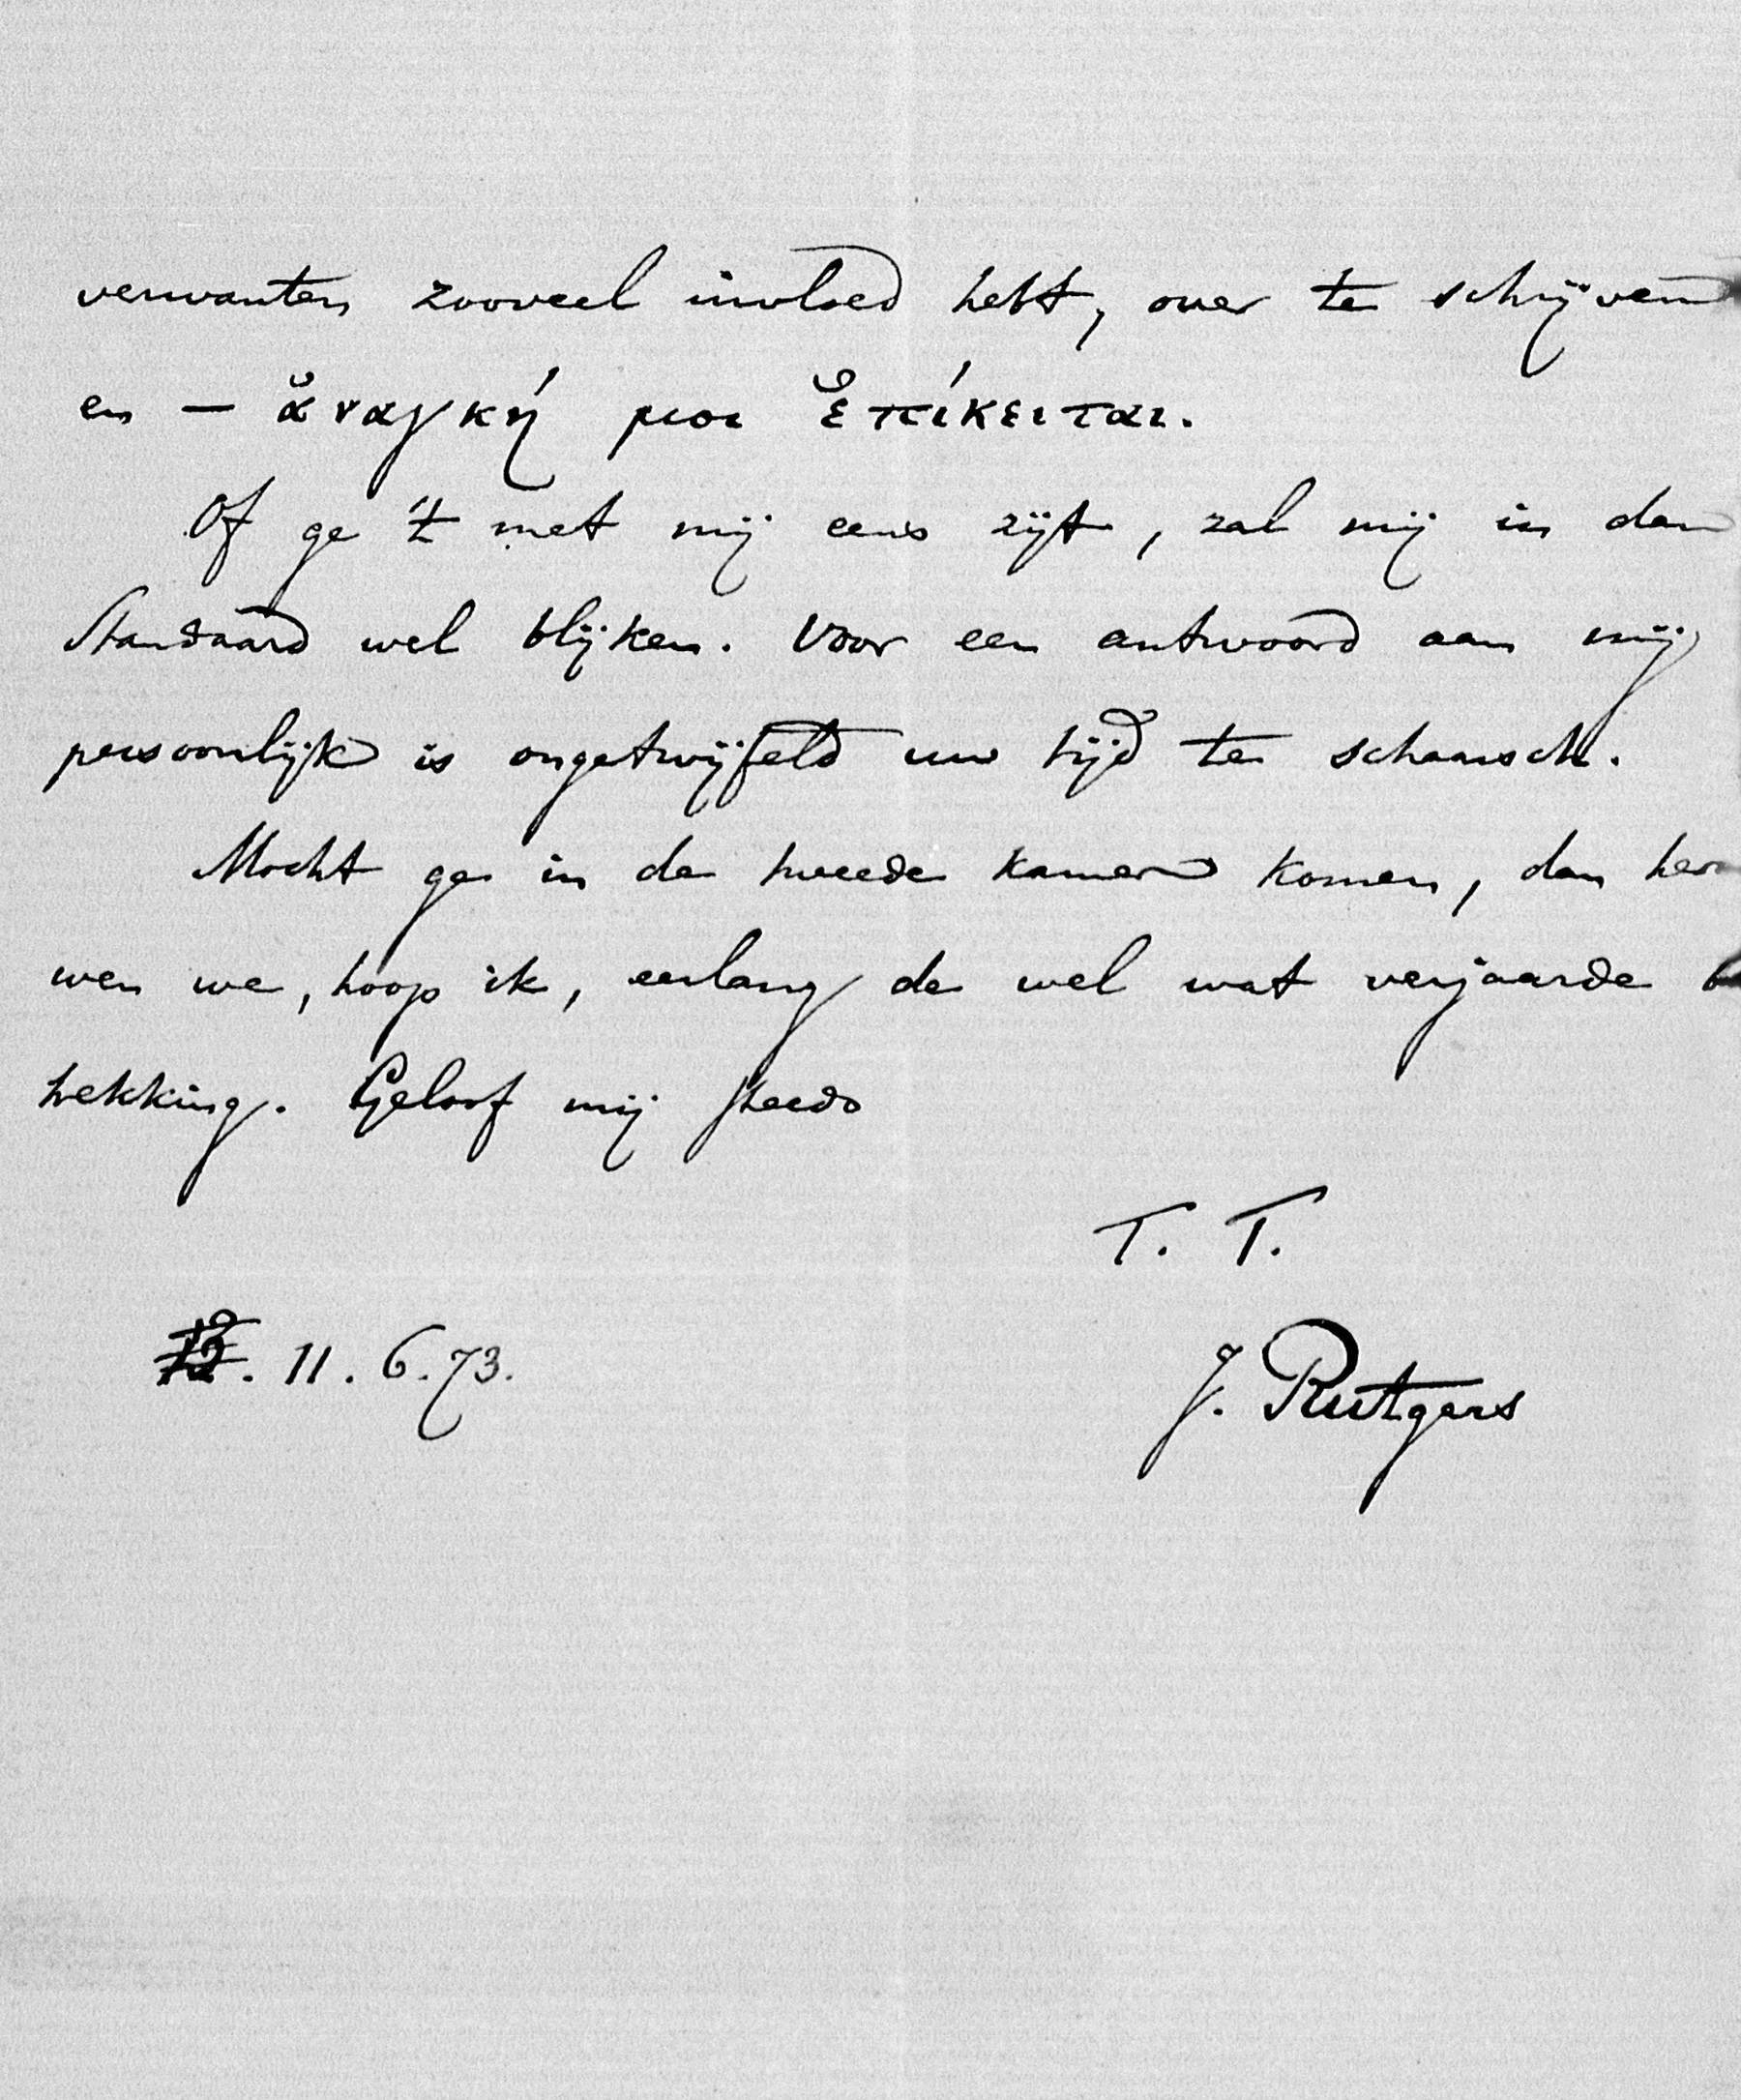 verwanten zooveel invloed hebt, over te schrijven
en — ἀναγκή μοι ἐπίκειται.
Of ge 't met mij eens zijt, zal mij in den
Standaard wel blijken. Voor een antwoord aan mij
persoonlijk is ongetwijfeld uw tijd te schaarsch.
Mocht ge in de tweede kamer komen, dan her
wen we, hoop ik, eerlang de wel wat verjaarde
trekking. Geloof mij steeds
T. T.
11. 6. 73.
J. Rutgers